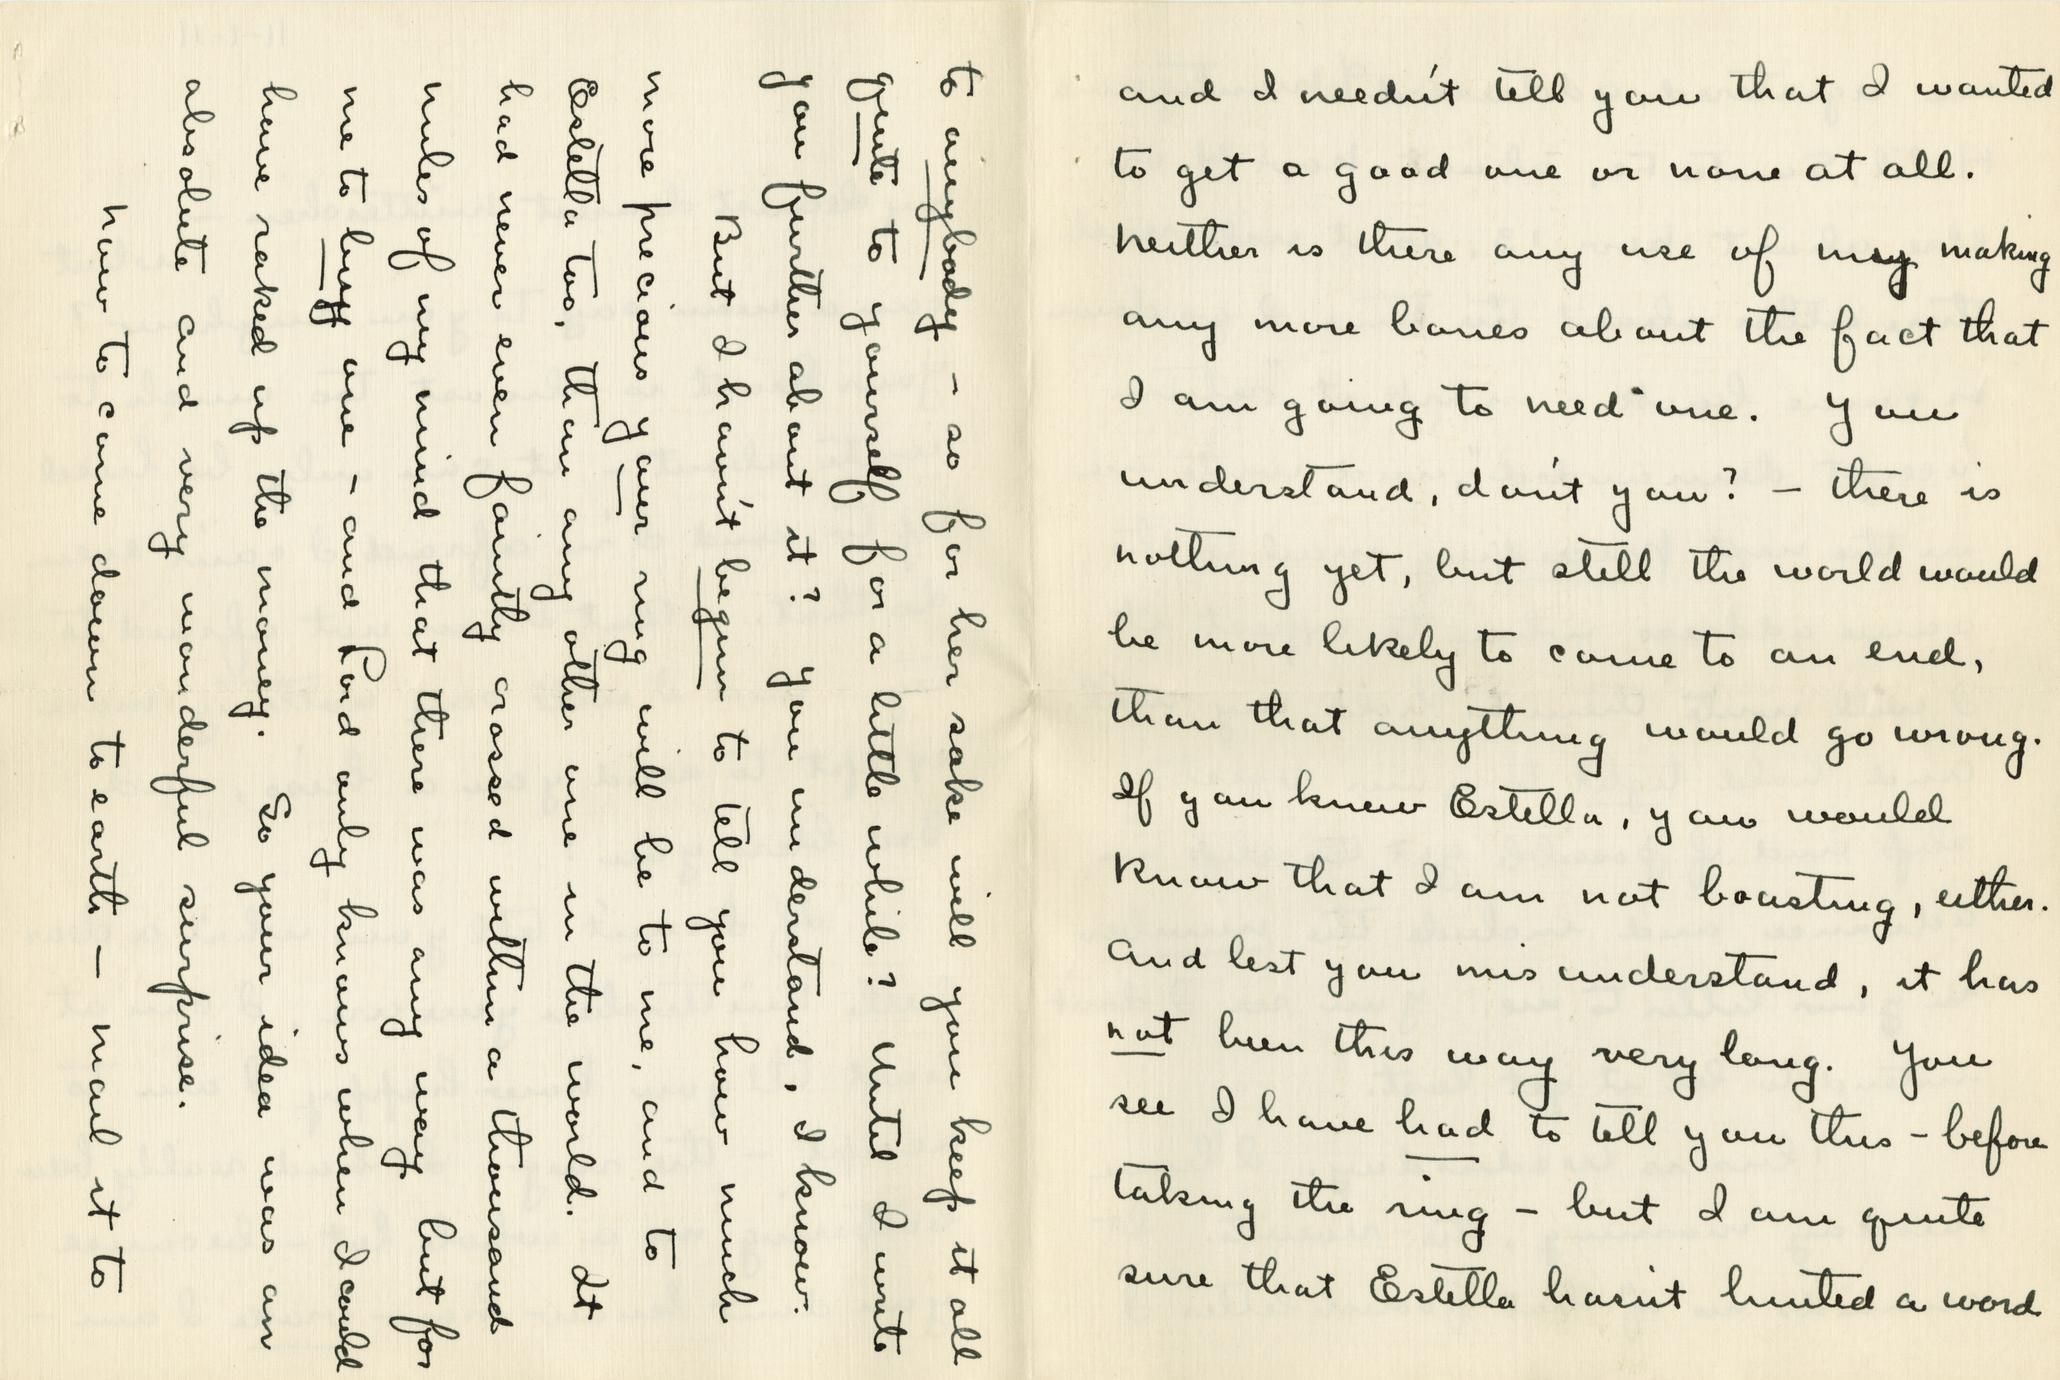 and I needn't tell you that I wanted
to get a good one or none at all.
Neither is there any use of my making
any more bones about the fact that
I am going to need one. You
understand, don't you? – there is
nothing yet, but still the world would
be more likely to come to an end,
than that anything would go wrong.
If you knew Estella, you would
know that I am not boasting, either.
And lest you misunderstand, it has
not been this way very long. You
see I have had to tell you this – before
taking the ring – but I am quite
sure that Estella hasn't hinted a word
to anybody – so for her sake will you keep it all
quite to yourself for a little while? Until I write
you further about it? You understand, I know.
But I haven't begun to tell you how much
more precious your ring will be to me, and to
Estella too, than any other one in the world. It
had never even faintly crossed within a thousand
miles of my mind that there was any way but for
me to buy one – and Lord only knows when I could
have raked up the money. So your idea was an
absolute and very wonderful surprise.
Now to come down to earth – mail it to